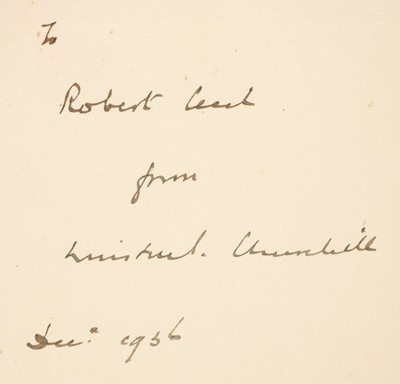 To
Robert Cecil
from
Winston S. Churchill
Dec. 1936